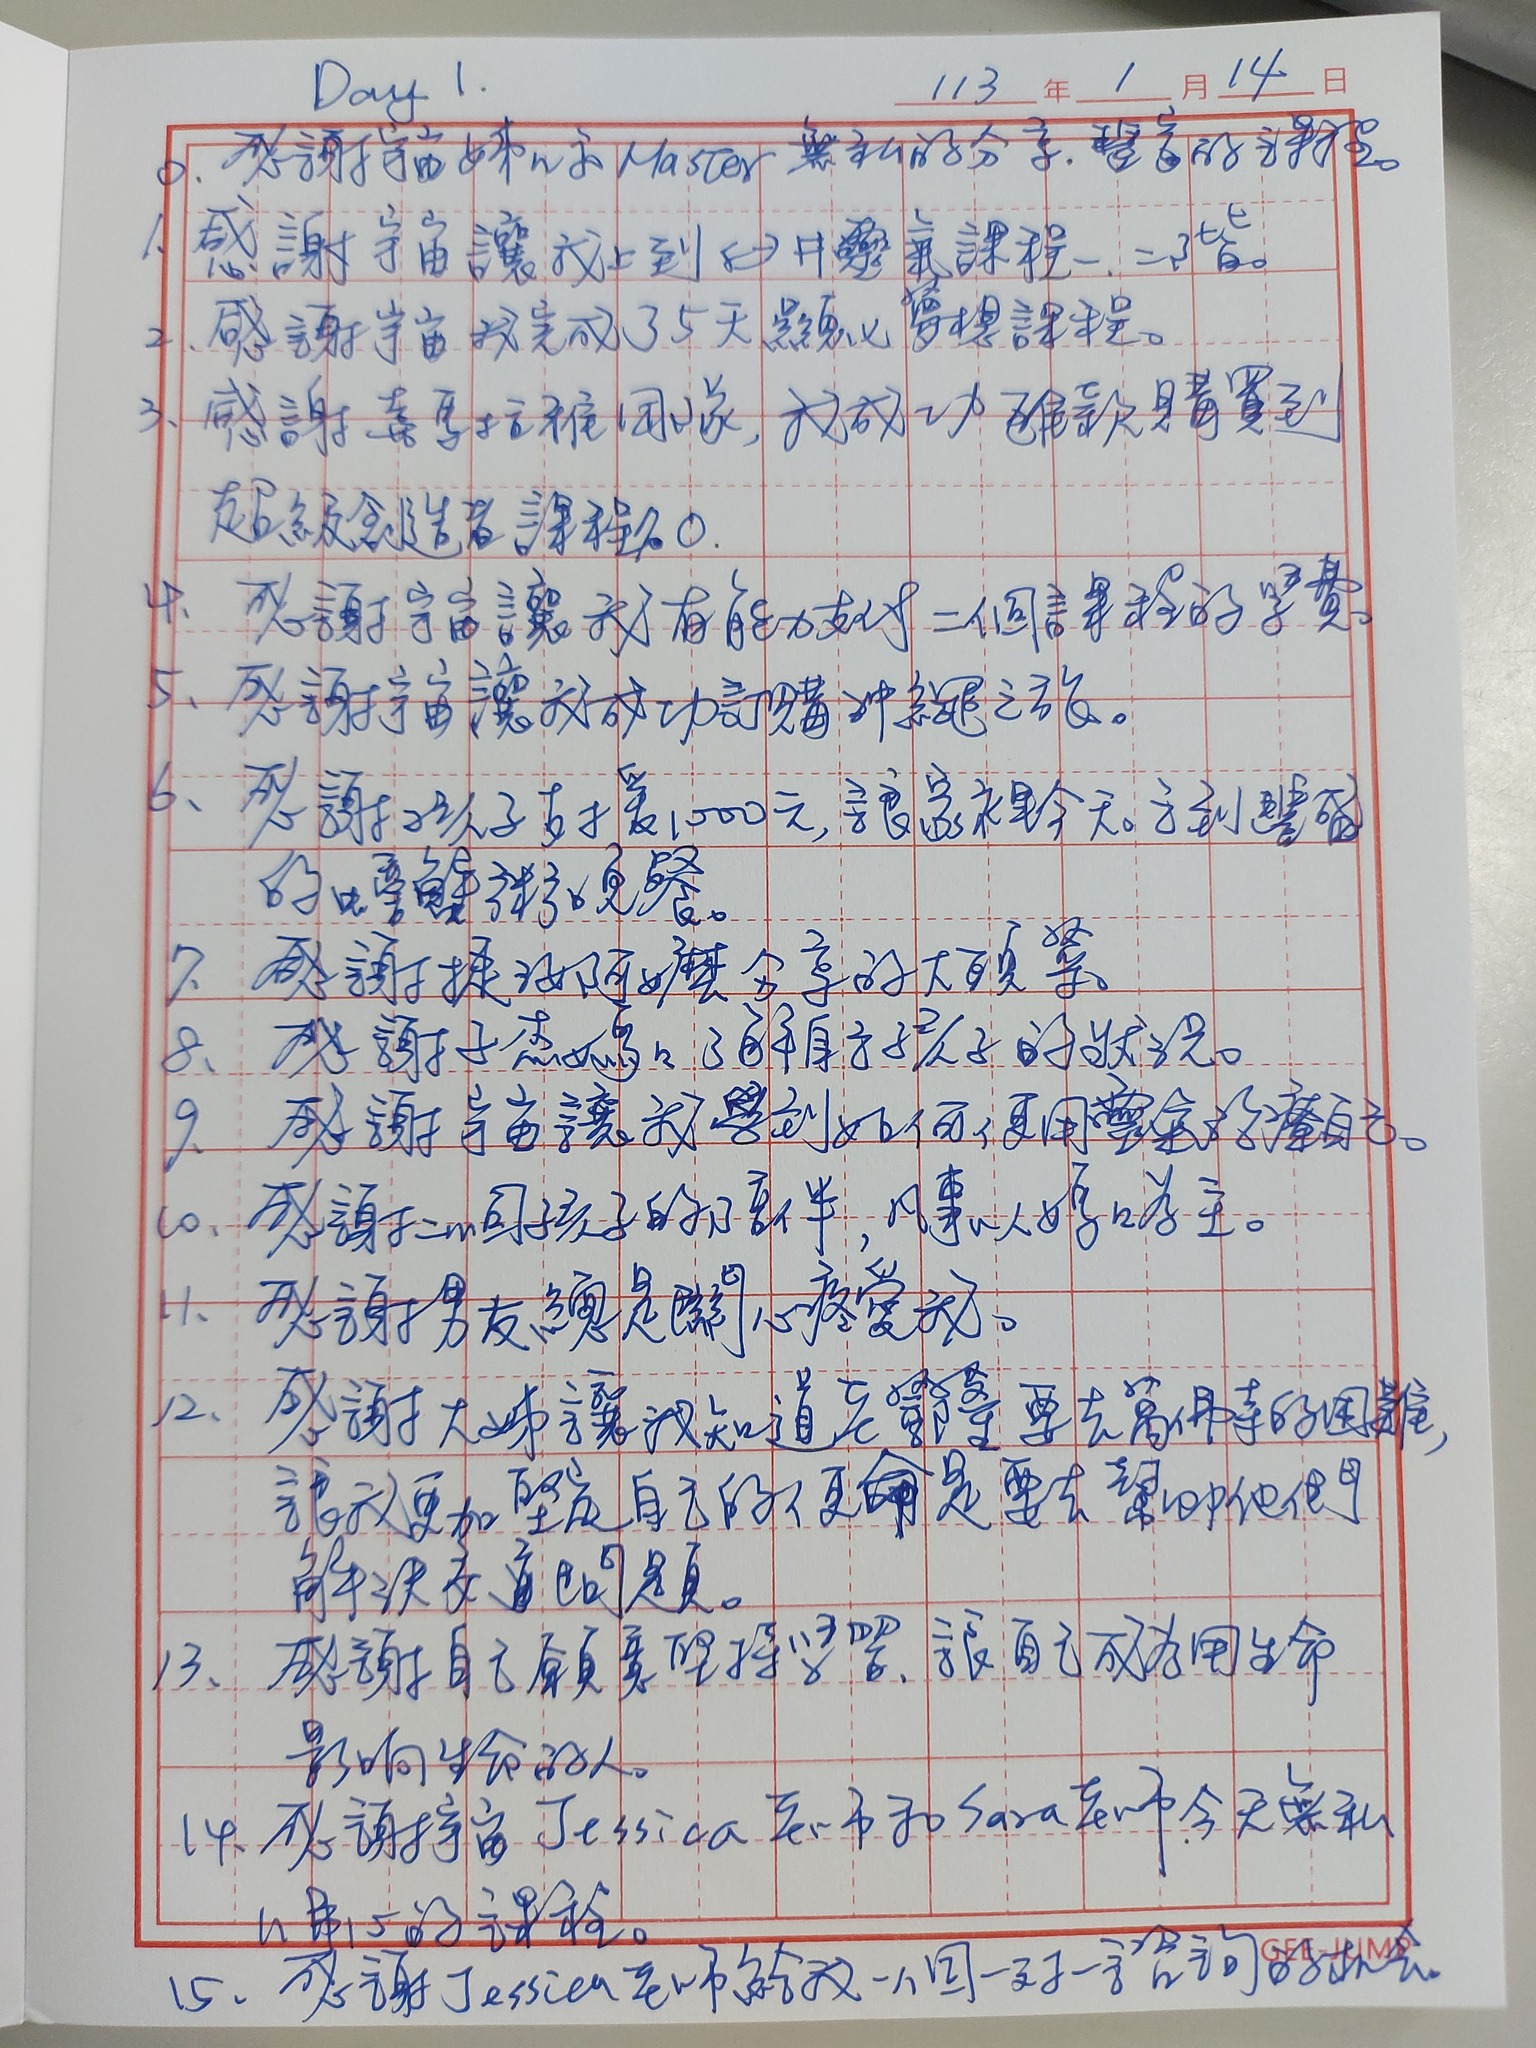 Day 1.
113 年 1 月 14 日
0. 感謝宇宙姊姊和Master 無私的分享.豐富的課程。
1. 感謝宇宙讓我上到臼井靈氣課程一、二階。
2. 感謝宇宙我完成了35天顯化夢想課程。
3. 感謝喜馬拉雅團隊,我成功匯款購買到
超級創造者課程6.0.
4. 感謝宇宙讓我有能力支付二個課程的學費。
5. 感謝宇宙讓我成功訂購沖繩之旅。
6. 感謝孩子支援1000元,讓家裡今天吃到豐富
的晚餐。
7. 感謝阿嬤分享的大頭菜。
8. 感謝子杰媽口了解自己孩子的狀況。
9. 感謝宇宙讓我學到如何使用靈氣治療自己。
10. 感謝二個孩子的陪伴,凡事以媽口為主。
11. 感謝男友總是關心疼愛我。
12. 感謝大姊讓我知道老營要去萬佛寺的困難,
讓我更加堅定自己的使命是要去幫助他們
解決交通問題。
13. 感謝自己願意堅持學習、讓自己成為用生命
影响生命的人。
14. 感謝宇宙Jessica老師和Sara老師今天無私
的課程。
15. 感謝Jessica老師給我一個一對一諮詢的机会。
GEE-JUMP